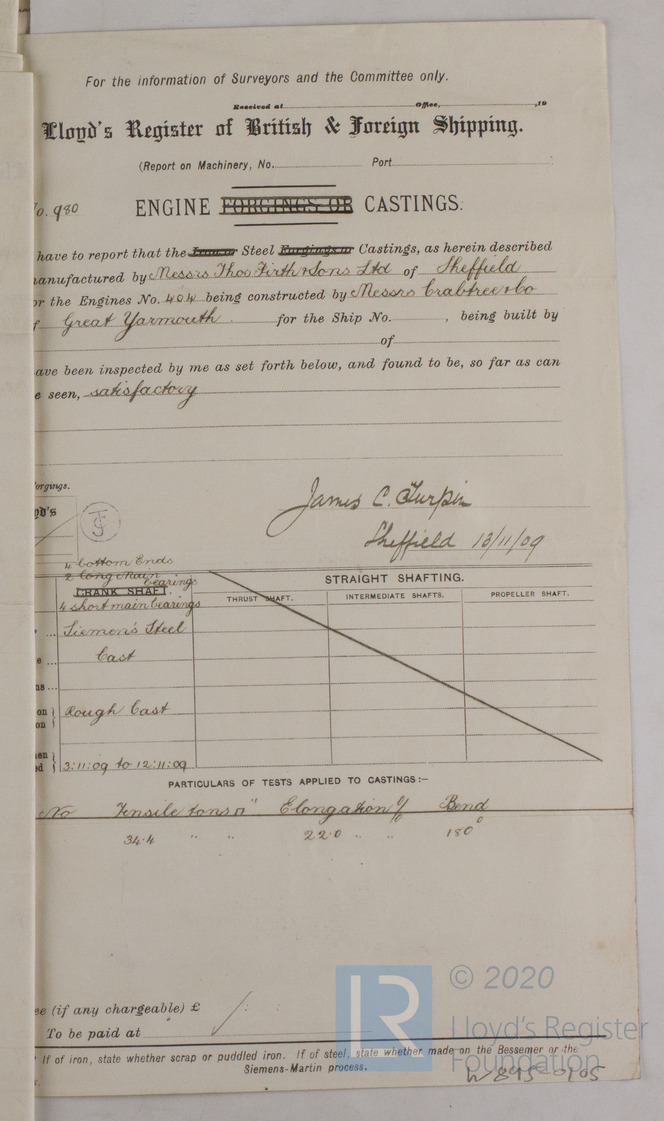 For the information of Surveyors and the Committee only.
Received at Office, ,19
Lloyd's Register of British & Foreign Shipping.
(Report on Machinery, No. Port
o. 980
ENGINE FORGINGS OR CASTINGS.
have to report that the Iron or Steel Forgings or Castings, as herein described
anufactured by Messrs Thos Firth & Sons Ltd of Sheffield
or the Engines No. 404 being constructed by Messrs Crabtree & Co
f Great Yarmouth. for the Ship No. , being built by
of
ave been inspected by me as set forth below, and found to be, so far as can
e seen, satisfactory
orgings.
yd's
James C. Turpin
Sheffield 13/11/09
4 bottom Ends
2 long Main bearings
CRANK SHAFT.
4 short main bearings
STRAIGHT SHAFTING.
THRUST SHAFT. INTERMEDIATE SHAFTS. PROPELLER SHAFT.
... Siemen's Steel
e ... Cast
ns ...
on
on } Rough Cast
en
ed } 3:11:09 to 12:11:09
PARTICULARS OF TESTS APPLIED TO CASTINGS:—
No Tensile tons □" Elongation % Bend
34.4 " " 22.0 " " 180°
ee (if any chargeable) £
To be paid at
* If of iron, state whether scrap or puddled iron. If of steel, state whether made on the Bessemer or the
Siemens-Martin process.
LR
© 2020
Lloyd's Register
Foundation
W895-0105